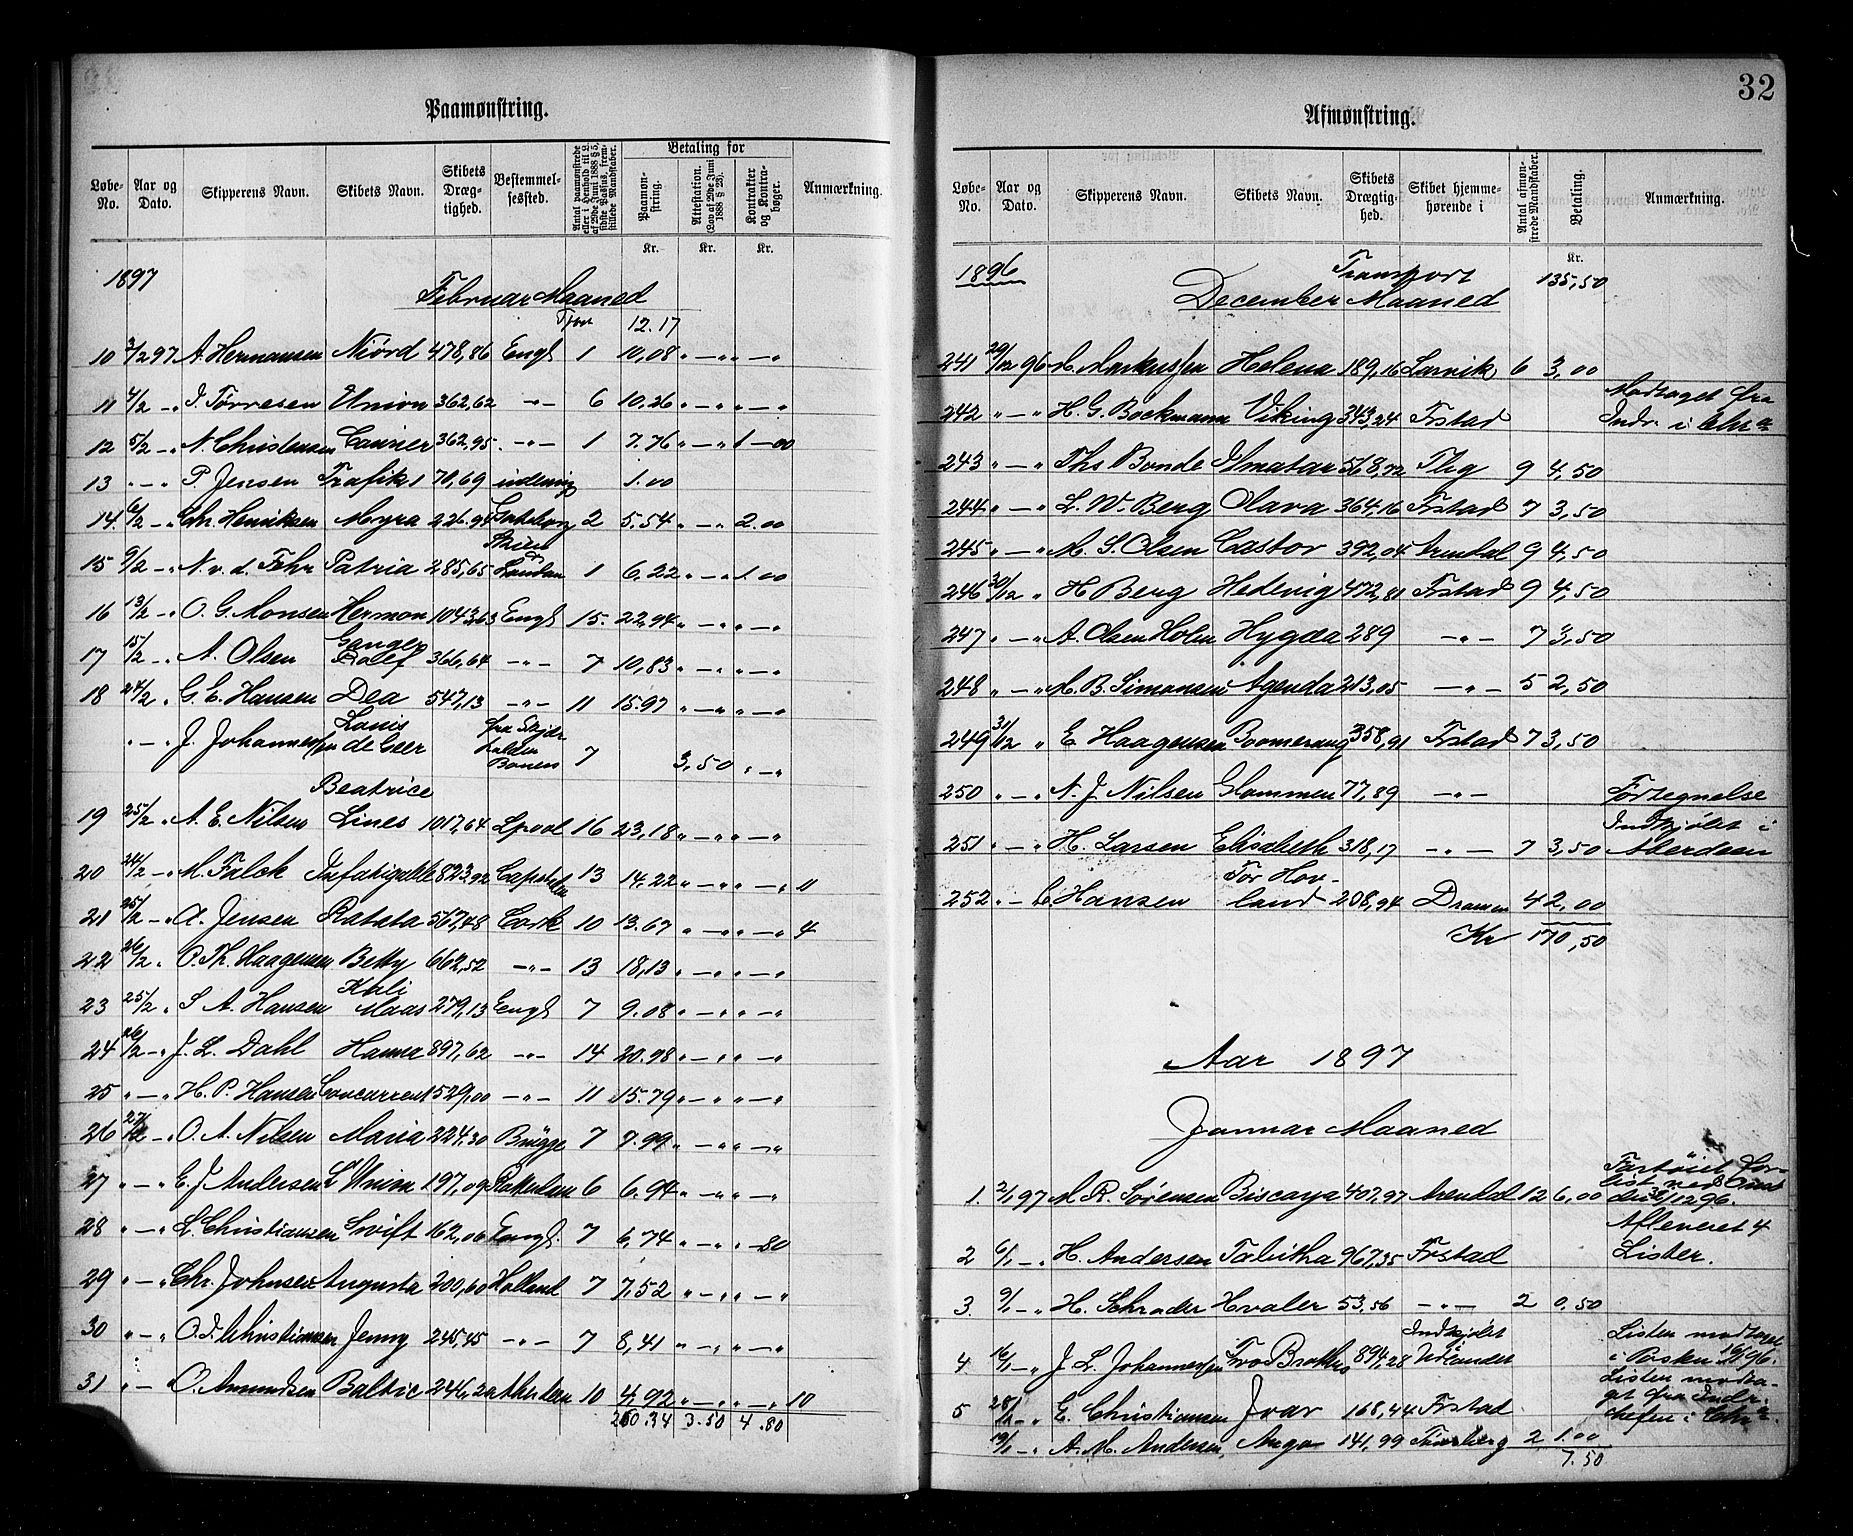 Paamønstring.
Løbe-No. Aar og Dato. Skipperens Navn. Skibets Navn. Skibets Dræg-tighed. Bestemmel-sessted. Antal paamønstrede eller i Henhold til L. af 29de Juni 1888 § 5, sidste Passus, frem-stillede Mandskaber. Betaling for Paamøn-string. Attestation. (Lov af 29de Juni 1888 § 23). Kontrakter og Kontra-bøger. Anmærkning.
Kr. Kr. Kr.
1897 Februar Maaned
Tport 12.17
10 3/2 97 A. Hermansen Niörd 478,86 Engl 1 10,08 " — " " — "
11 4/2 - " J. Törresen Union 362,62 - " - 6 10.26 " — " " — "
12 5/2 - " N. Christensen Courier 362,95 - " - 1 7.76 " — " 1 — 00
13 " - " P Jensen Trafik 1 70,69 1.00
14 6/2 - " Chr. Henriksen Myra 226.94 2 5.54 " — " 2.00
Skien
15 9/2 - " N. v. d. Fehr Patria 285,65 London 1 6.22 " — " 1.00
16 13/2 - " O. G. Monsen Hermon 1043,63 Engl 15. 22,94 " — " " — "
Ganger
17 15/2 - " A. Olsen Rolf 366,64 - " - 7 10,83 " — " " — "
18 24/2 - " G. E. Hansen Dea 547,13 - " - 11 15.97 " — " " — "
Louis fra Skjær-
" - " J. Johannessen de Geer halden Bonens 7 3,50 " — "
Beatrice
19 25/2 - " A. E. Nilsen Lines 1017,64 Lpool 16 23,18 " — " " — "
20 24/2 - " M. Falck Infatigable 823,92 13 14,22 " — " " — " 11
21 25/2 - " A. Jensen Ratata 567,48 Cork 10 13.67 " — " " — " 4
22 26/2 " O. Th. Haagensen Betty 662,52 - " - 13 18,13 " — " " — "
23 25/2 - " S A. Hansen Maas 279,13 Engl 7 9.08 " — " " — "
24 26/2 - " J. L. Dahl Hanna 897,62 - " - 14 20.98 " — " " — "
25 " - " H. P. Hansen Concurrent 529,00 - " - 11 15.79 " — " " — "
26 27/2 - " O. A. Nilsen Maria 224,30 Brügge 7 7.99 " — " " — "
27 " - " E. J. Andersen L'Union 197,09 6 6.94 " — " " — "
28 " - " L. Christiansen Swift 162,06 Engl. 7 6,74 " — " " — 80
29 " - " Chr. Johnsen Augusta 200,60 Holland 7 7,52 " — " " — "
30 " - " O. F. Christiansen Jenny 245,45 - " - 7 8,41 " — " " — "
31 " - O. Amundsen Baltic 246,20 10 4,92 " — " " — " 10
260.34 3.50 4.80
32
Afmønstring.
Løbe-No. Aar og Dato. Skipperens Navn. Skibets Navn. Skibets Drægtig-hed. Skibet hjemme-hørende i Antal afmøn-strede Mandskaber. Betaling. Anmærkning.
Kr.
1896 Transport 135,50
December Maaned
241 29/12 96 M. Markussen Helena 189,16 Larvik 6 3,00
Modtaget fra
242 " - " H. G. Böckmann Viking 343,24 Frstad Indr. i Chr a
243 " - " Ths Bonde Almatar 568,72 Tbg 9 4,50
244 " - " L. W. Berg Clara 364,16 Frstad 7 3,50
245 " - " M. S. Olsen Castor 392,04 Arendal 9 4,50
246 30/12 " H Berg Hedevig 472,81 Frstad 9 4,50
247 " - " A. Olsen Holm Hygæa 289 - " - 7 3,50
248 " - " M. B. Simonsen Agenda 213,05 - " - 5 2,50
249 31/12 " E Haagensen Boomerang 358,91 Frstad 7 3,50
250 " - " N. J. Nilsen Glommen 77,89 - " - Fortegnelse
Indkjöbt i
251 " - " H. Larsen Elisabeth 318,17 - " - 7 3,50 Aberdeen
Tor Hov-
252 " - C. Hansen land 208,94 Drammen 4 2,00
Kr 170,50
Aar 1897
Januar Maaned
Fartöiet for-
list ved
1. 2/1 97 M. R. Sörensen Biscaya 407,97 Arendal 12 6,00 den /12 96.
Afleveret 4
2 6/1 - " H. Andersen Tabitha 967,35 Frstad Lister.
3. 9/1 - " H. Schrader Hvaler 53,56 - " - 2 0.50
Indkjöbt Listen modtaget
4 16/1 - " J. L. Johannessen Two Brothers 894,28 Udlandet i Posten 16/1 96.
Listen modta-
get fra Indr.
5 28/1 - " E. Christiansen Ivar 168,44 Frstad chefen i Chr a.
19/1 - " A. M. Andersen Anga 141,99 2 1.00
7.50